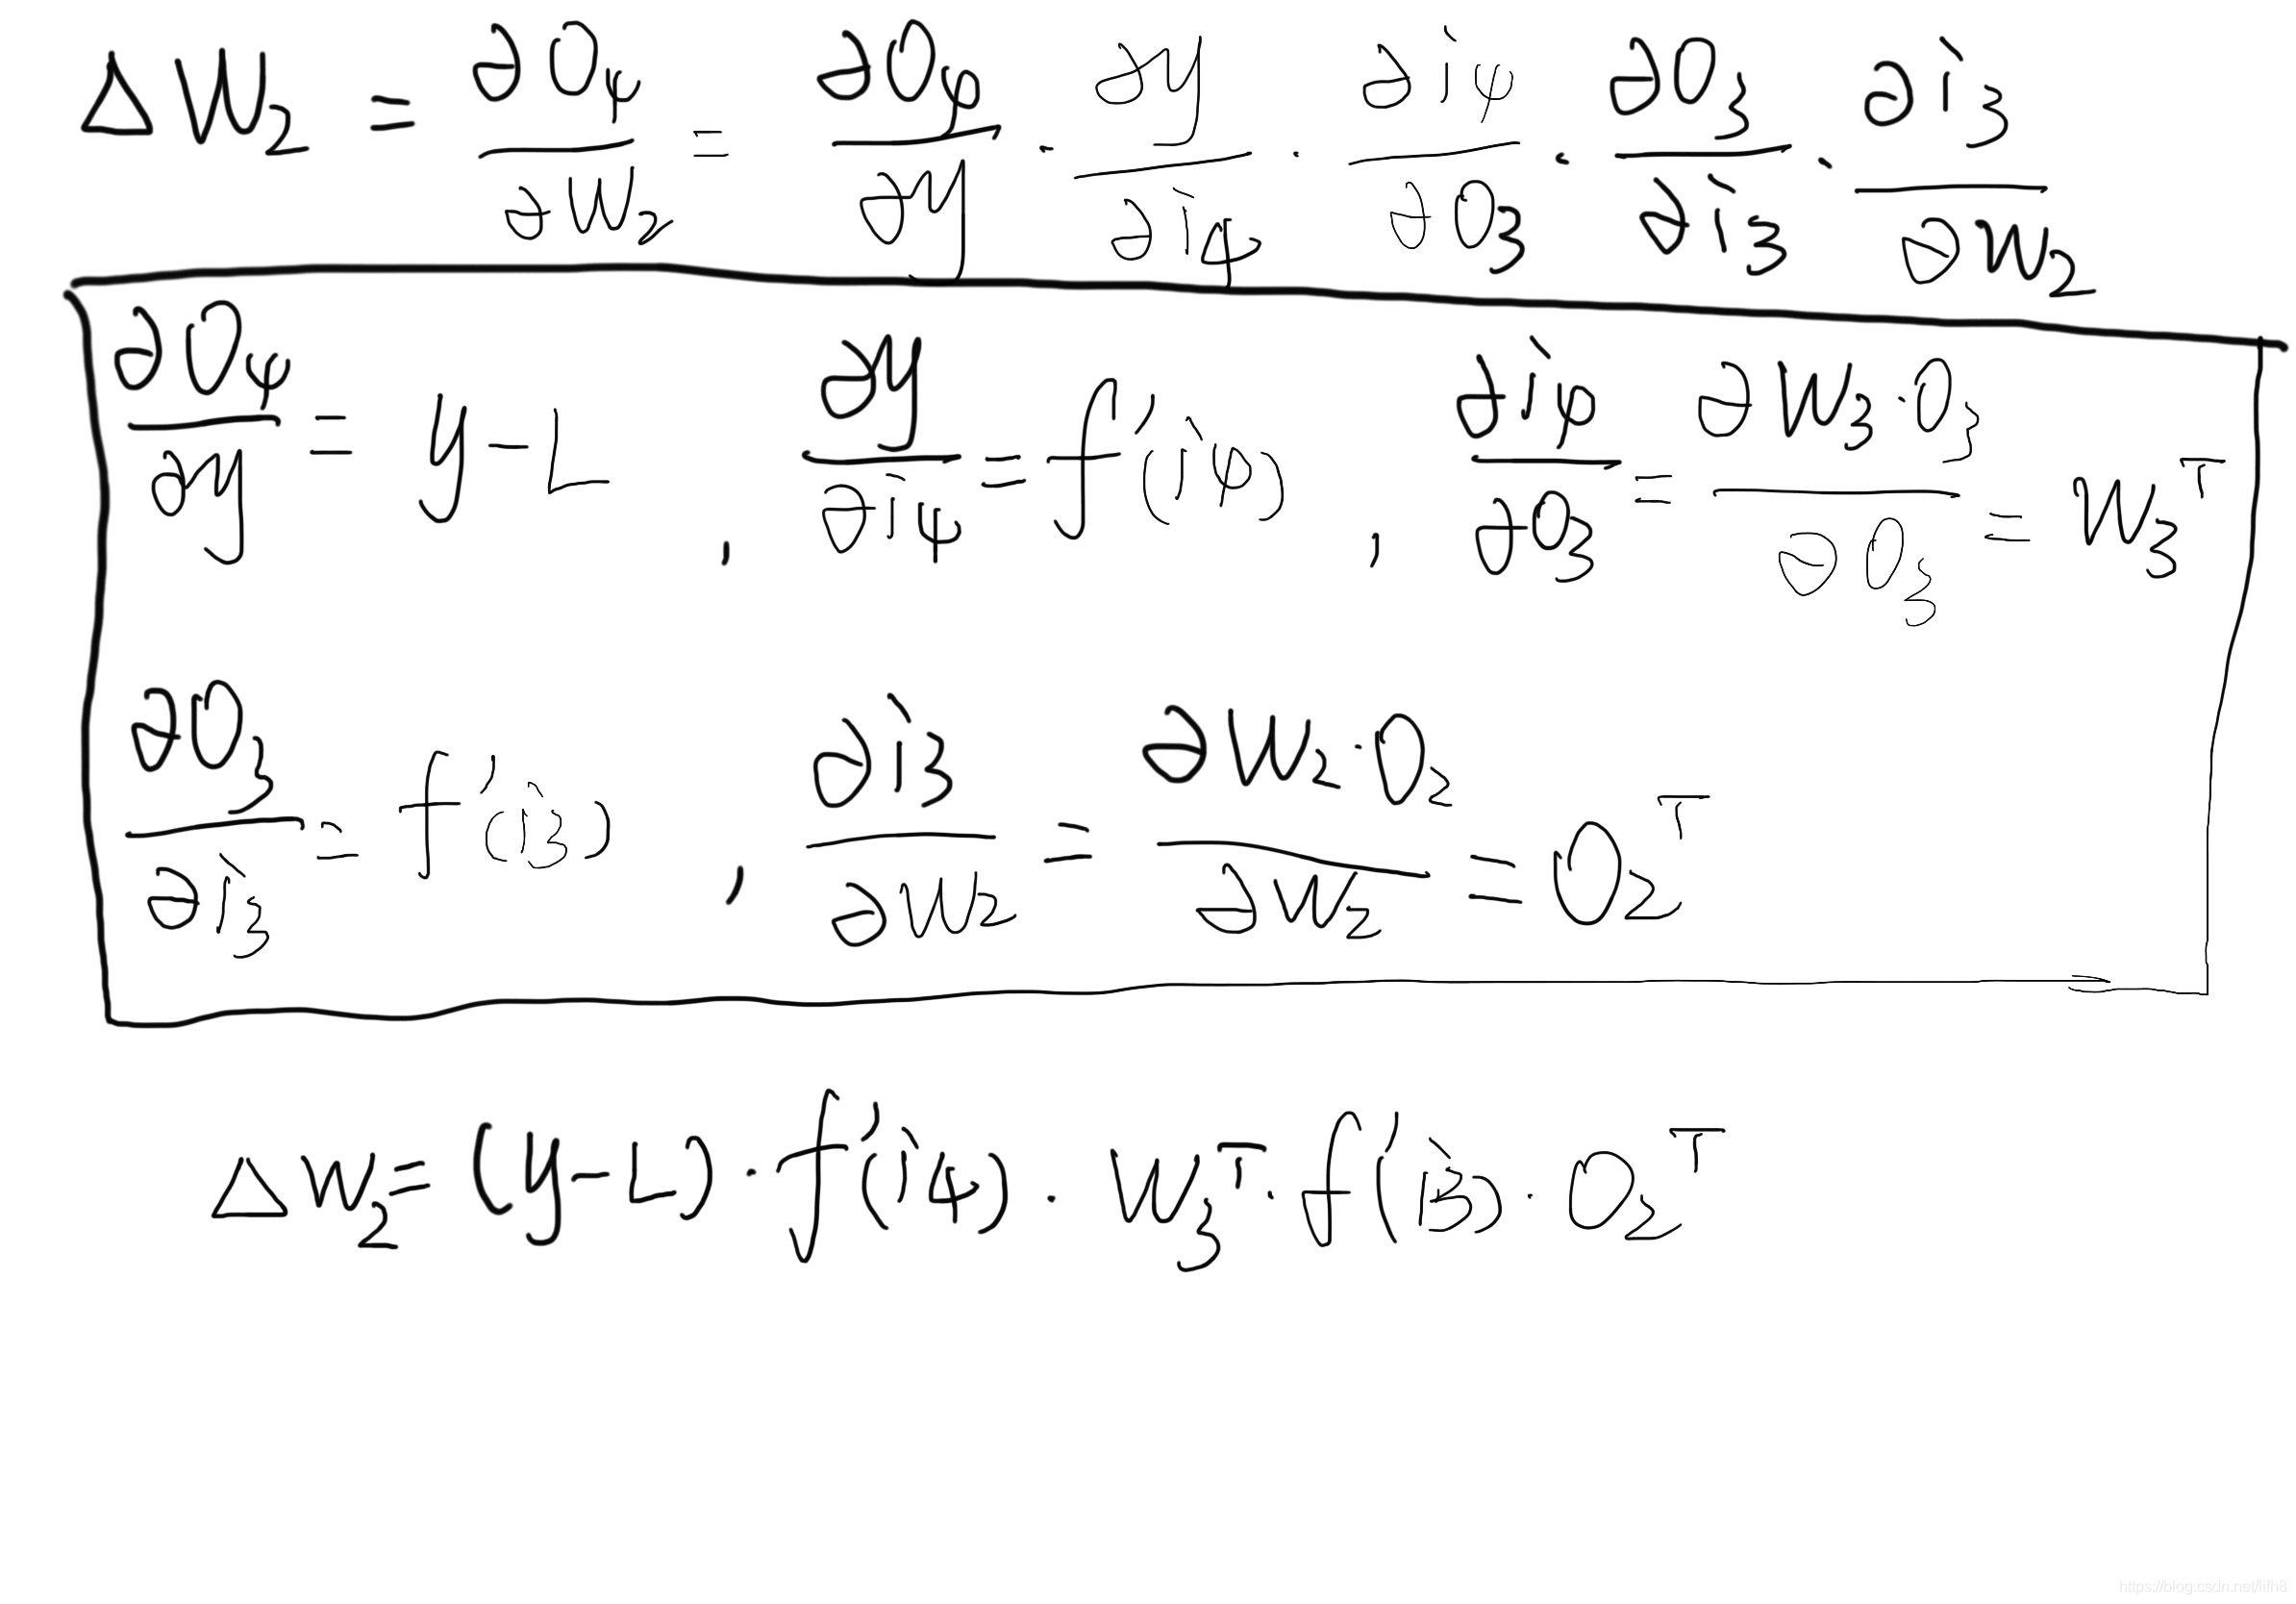 ΔW₂ = ∂O₄/∂W₂ = ∂O₄/∂y · ∂y/∂i₄ · ∂i₄/∂O₃ · ∂O₃/∂i₃ · ∂i₃/∂W₂
∂O₄/∂y = y-L , ∂y/∂i₄ = f'(i₄) , ∂i₄/∂O₃ = ∂W₃·O₃/∂O₃ = W₃ᵀ
∂O₃/∂i₃ = f'(i₃) , ∂i₃/∂W₂ = ∂W₂·O₂/∂W₂ = O₂ᵀ
ΔW₂ = (y-L) · f'(i₄) · W₃ᵀ · f'(i₃) · O₂ᵀ
https://blog.csdn.net/lifh8